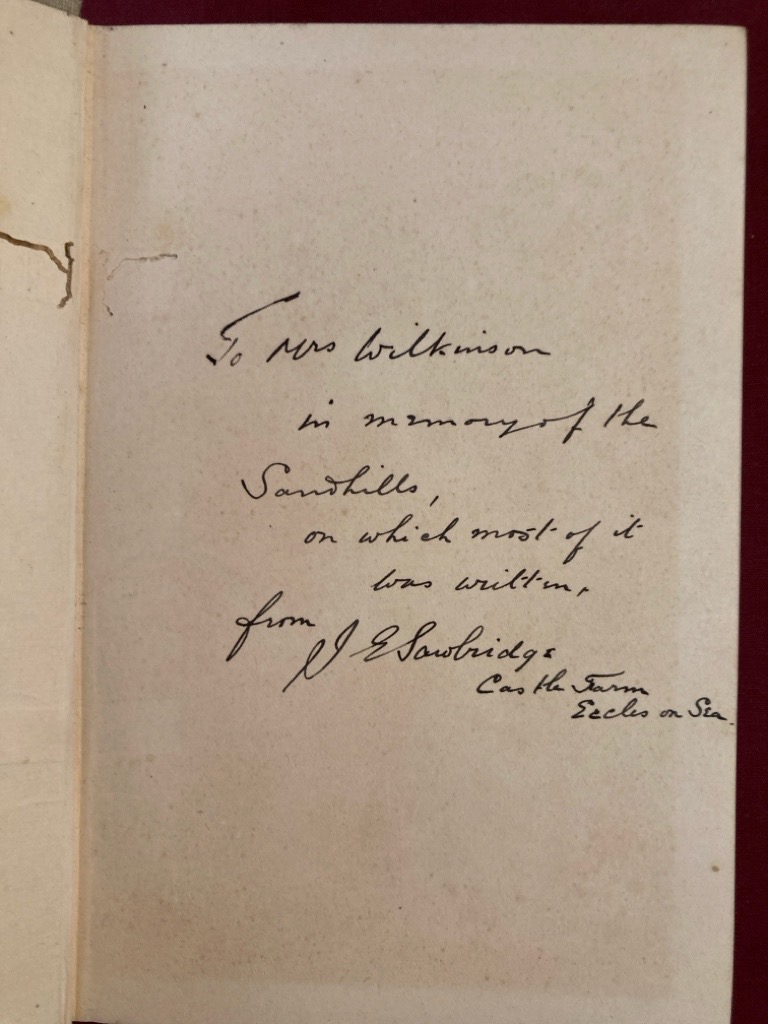 To Mrs Wilkinson
in memory of the
Sandhills,
on which most of it
was written,
from
J E Sawbridge
Castle Farm
Eccles on Sea.